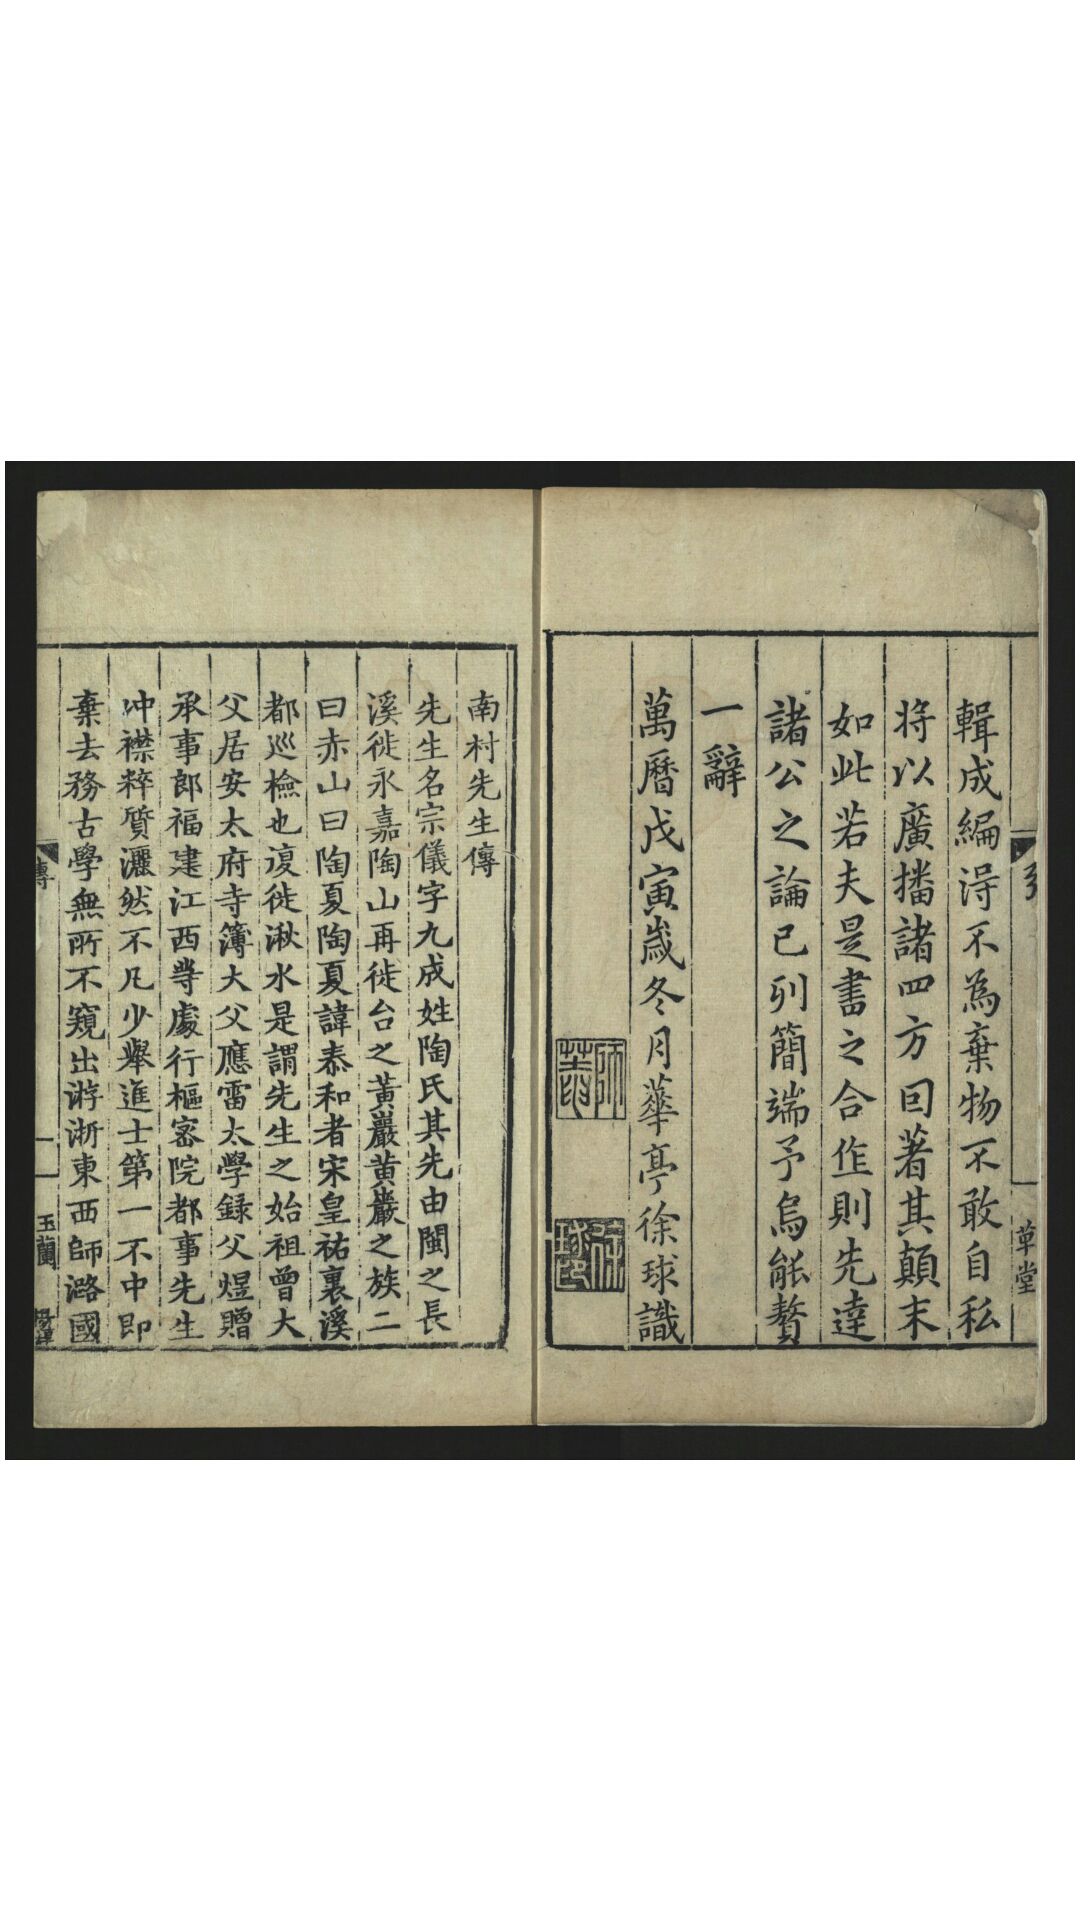 引
草堂
輯成編淂不為棄物不敢自私
将以廣播諸四方囙著其顛末
如此若夫是書之合作則先達
諸公之論已列簡端予烏能贅
一辭
萬曆戊寅歲冬月華亭徐球識
徐球
南村先生傳
先生名宗儀字九成姓陶氏其先由閩之長
溪徙永嘉陶山再徙台之黃巖黃巖之族二
曰赤山曰陶夏陶夏諱泰和者宋皇祐裏溪
都巡檢也復徙湫水是謂先生之始祖曾大
父居安太府寺簿大父應雷太學録父煜贈
承事郎福建江西等處行樞密院都事先生
冲襟粹質灑然不凡少舉進士第一不中即
棄去務古學無所不窺出游浙東西師潞國
傳
一
玉蘭